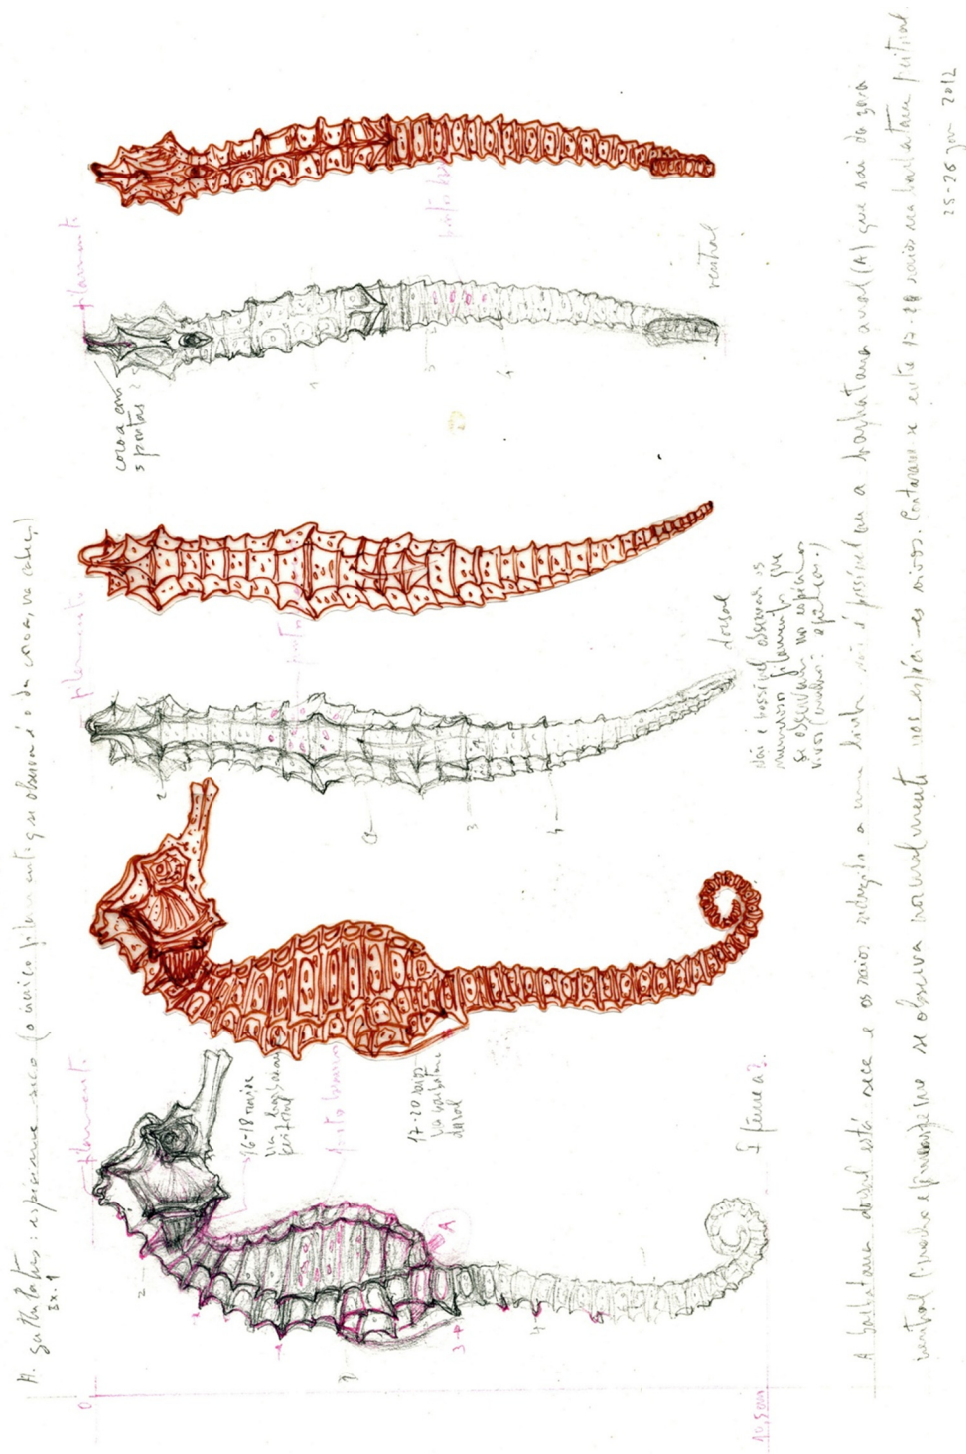 H. guttulatus: espécime seco (o único filamento que se observa é o da coroa, na cabeça)
Ex. 1
filamento
filamento
filamento
coroa com
5 pontas ?
ventral
dorsal
Não é possível observar os
numerosos filamentos que
se observam nos espécimes
vivos
16-18 raios
na barbatana
peitoral
17-20 raios
na barbatana
dorsal
ponto branco
A
♀ fêmea ?
0
10,5 cm
2
1
3
4
2
3
4
1
3
4
A barbatana dorsal está seca e os raios reduzidos a uma linha, não é possível ver a barbatana anal (A) que sai da zona
ventral se observa normalmente nos espécimes vivos. Contaram-se entre 17-20 raios na barbatana peitoral
25-26 jan 2012